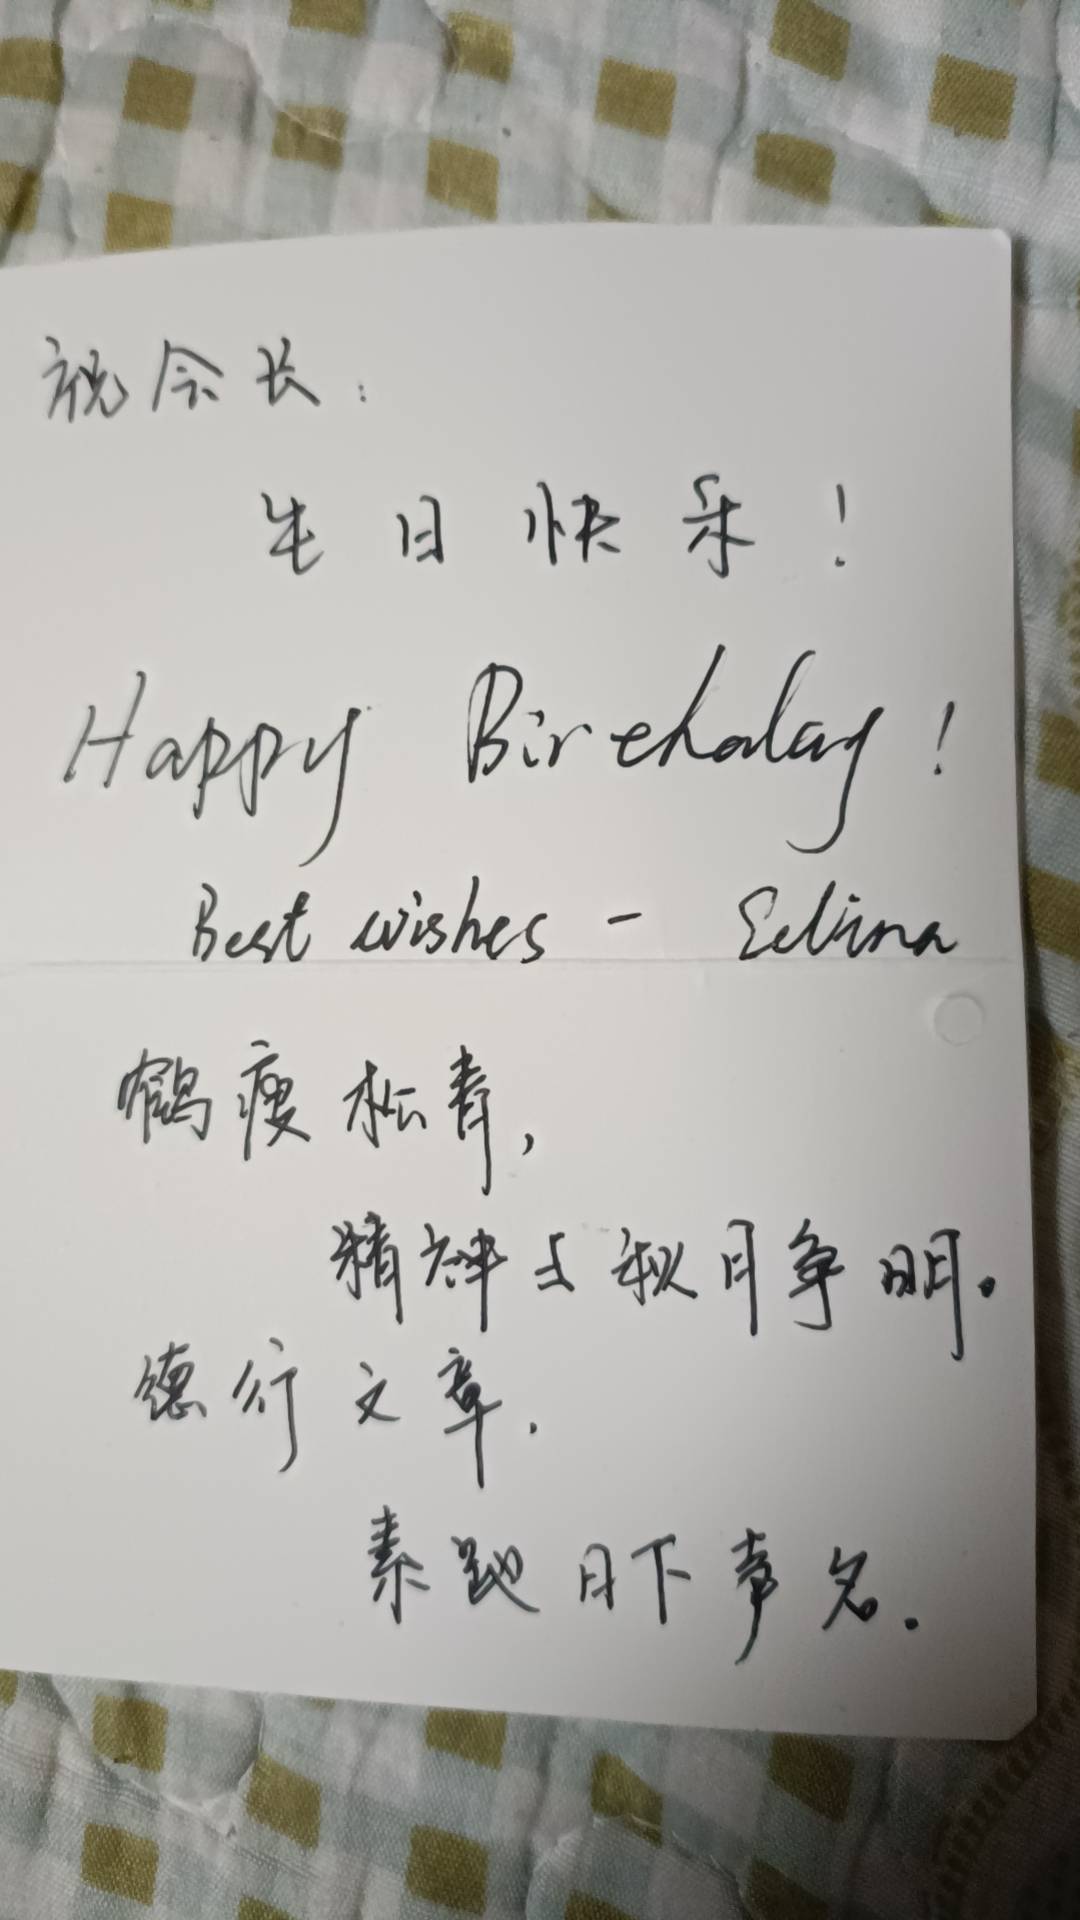 祝会长：
生日快乐！
Happy Birthday!
Best wishes - Selina
鹤瘦松青，
精神与秋月争明。
德行文章，
素驰日下声名。